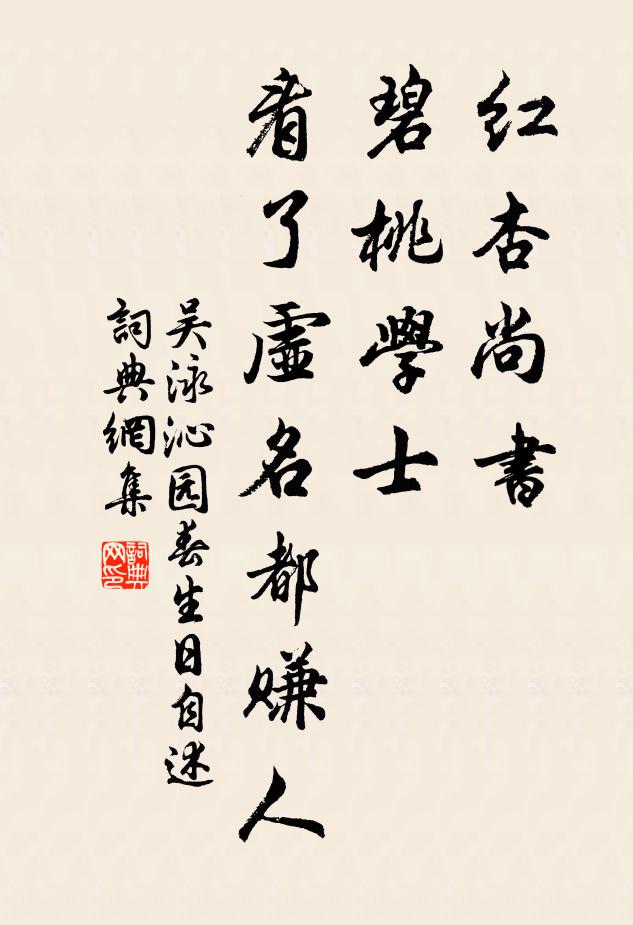 红杏尚書
碧桃學士
看了虛名都赚人
吴泳沁园春生日自述
詞典網集
詞典
网印